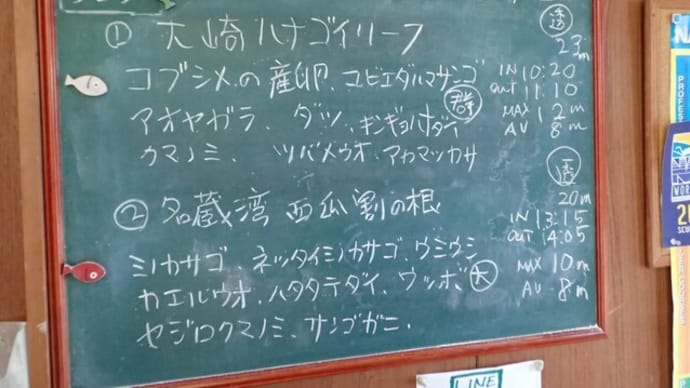 ① 大崎ハナゴイリーフ
コブシメの産卵、ユビエダハマサンゴ
アオヤガラ、ダツ、キンギョハナダイ 群
クマノミ、ツバメウオ、アカマツカサ
透
23m
IN 10:20
OUT 11:10
MAX 12m
AV 8m
② 名蔵湾 西瓜割の根
ミノカサゴ、ネッタイミノカサゴ、ウミウシ
カエルウオ、ハタタテダイ、ウツボ 大
セジロクマノミ、サンゴガニ.
透
20m
IN 13:15
OUT 14:05
MAX 10m
AV 8m
LINE